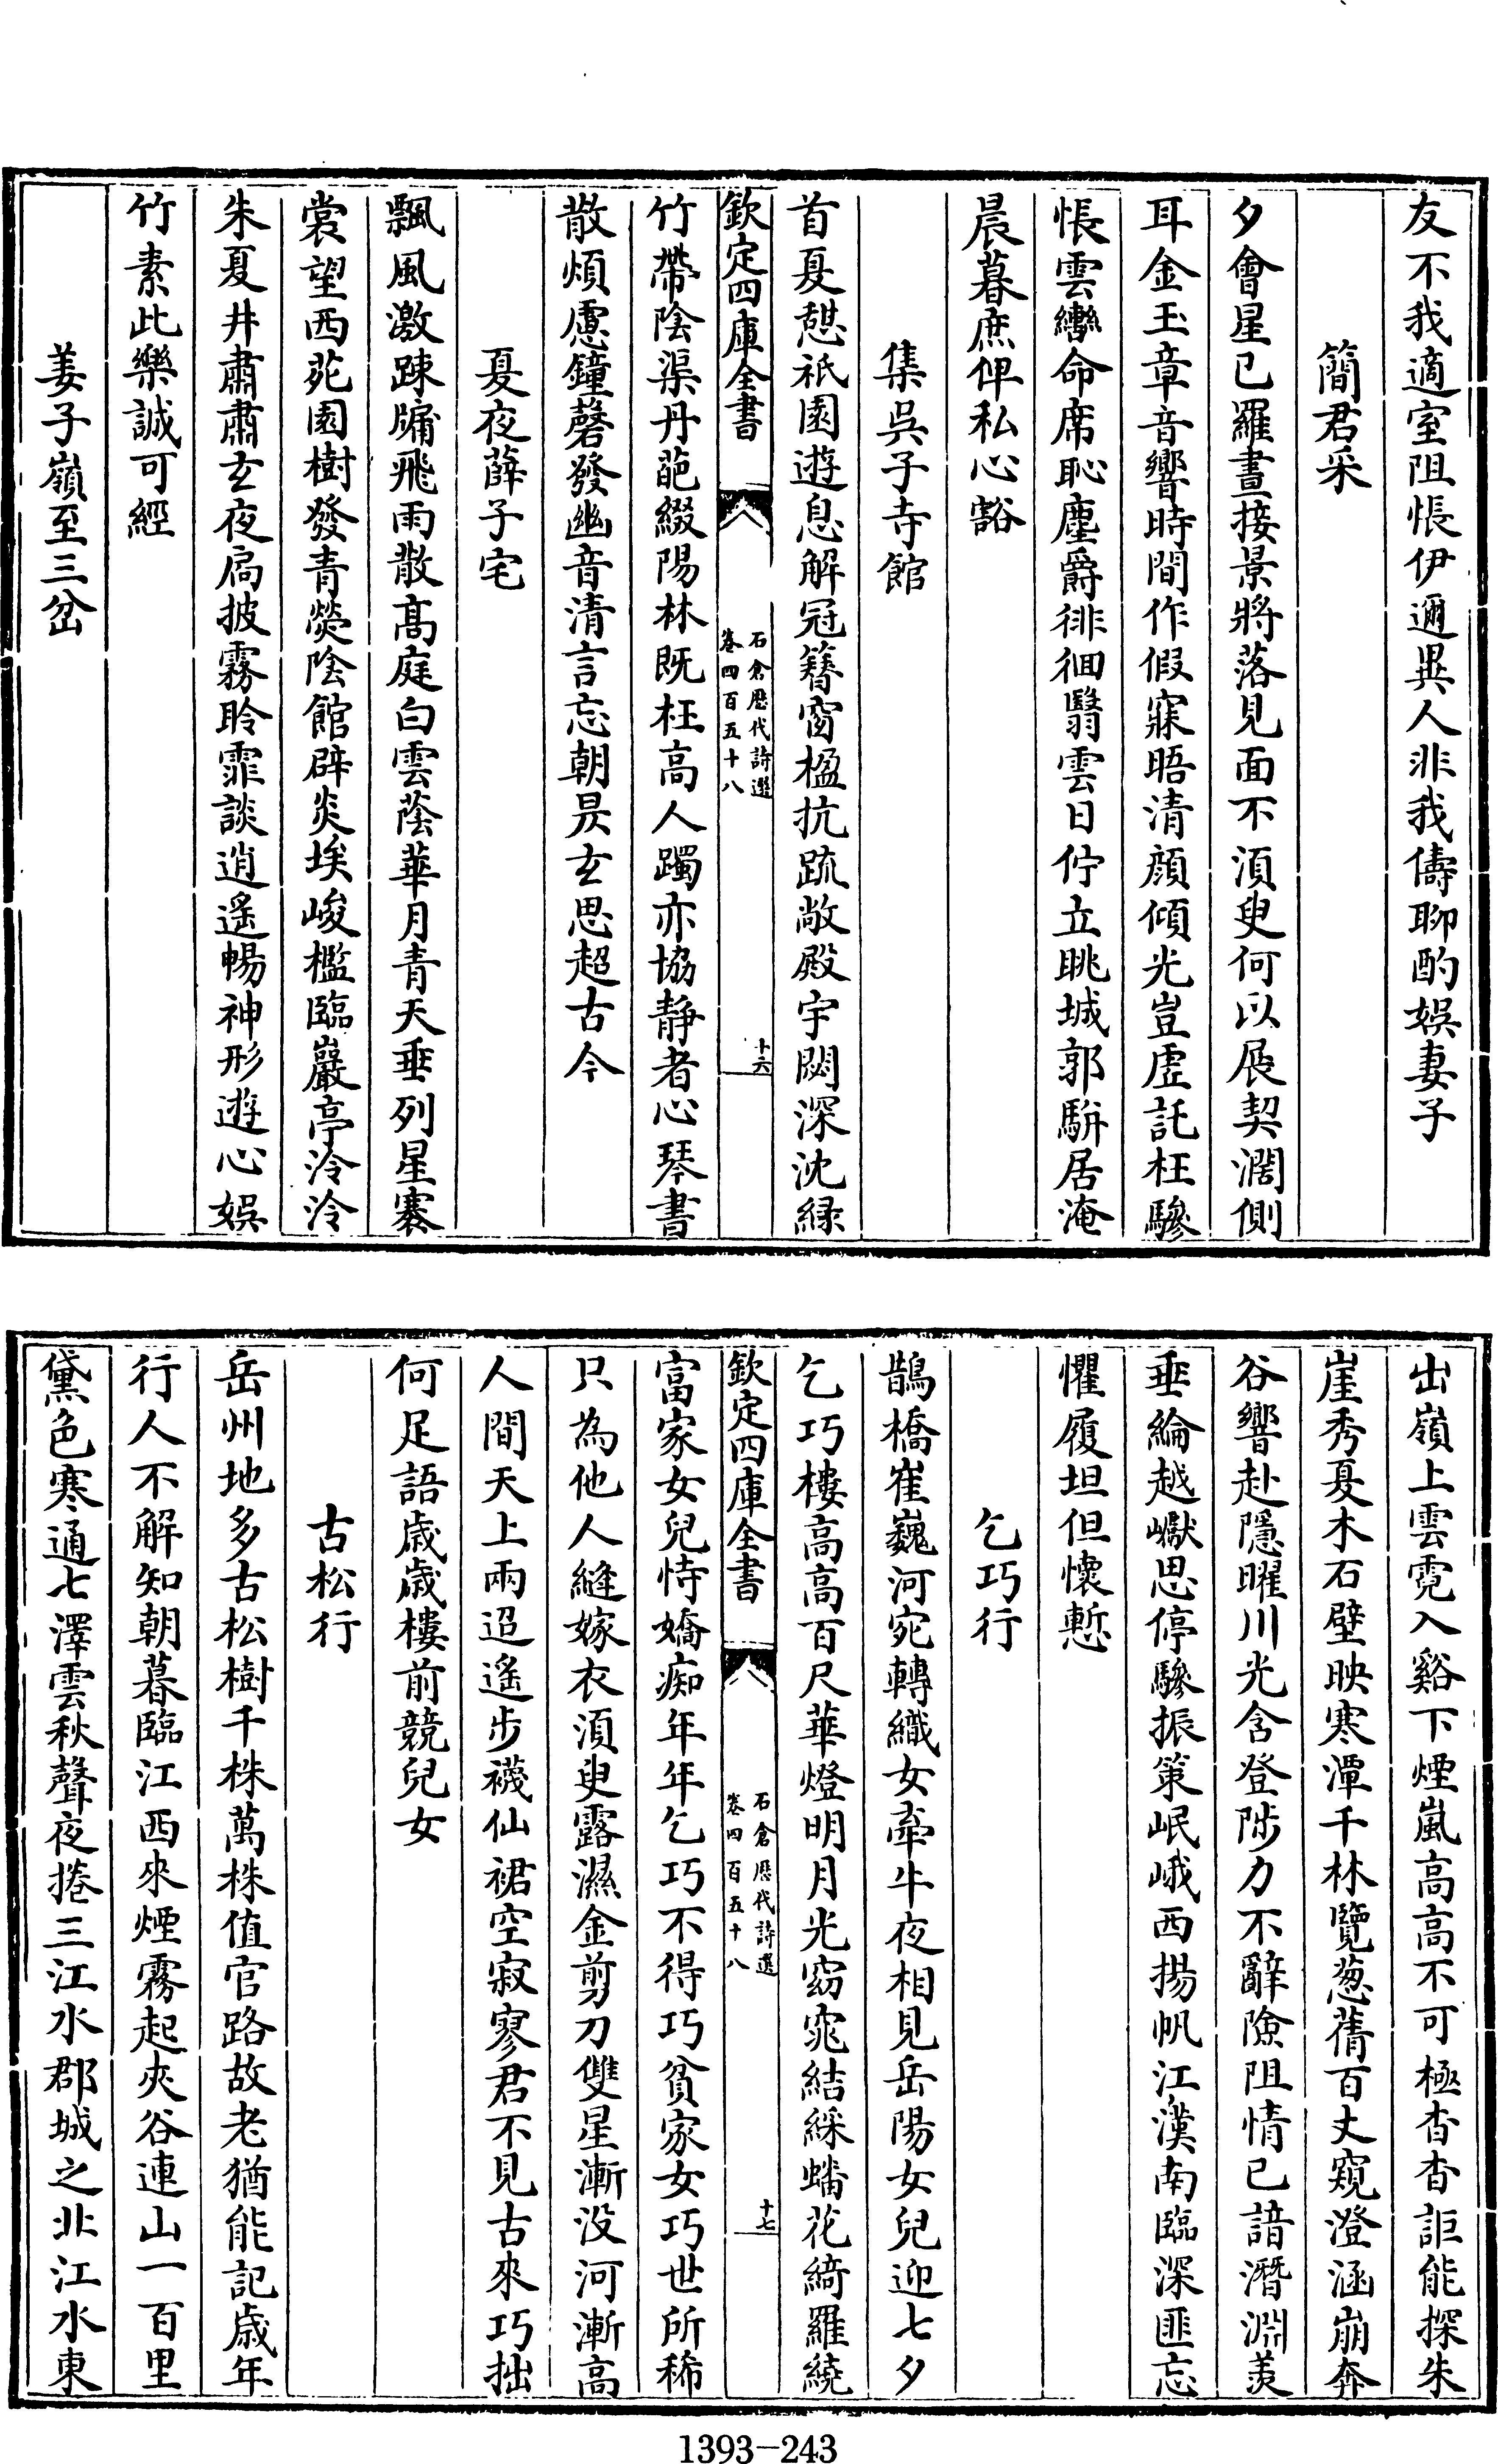 友不我適室阻悵伊邇異人非我儔聊酌娛妻子
簡君采
夕會星已羅晝接景將落見面不須臾何以展契濶側
耳金玉章音響時間作假寐晤清顔傾光豈虚託枉驂
悵雲轡命席恥塵爵徘徊翳雲日佇立眺城郭駢居淹
晨暮庶俾私心豁
集吳子寺館
首夏憇祇園遊息解冠簪窗楹抗疏敞殿宇閟深沈緑
欽定四庫全書
石倉歷代詩選
卷四百五十八
十六
竹帶陰渠丹葩綴陽林既枉高人躅亦協靜者心琴書
散煩慮鐘磬發幽音清言忘朝昃玄思超古今
夏夜薛子宅
飄風激踈牖飛雨散高庭白雲蔭華月青天垂列星褰
裳望西苑園樹發青熒陰館辟炎埃峻檻臨巖亭泠泠
朱夏井肅肅玄夜扃披霧聆霏談逍遙暢神形遊心娛
竹素此樂誠可經
姜子嶺至三岔
出嶺上雲霓入谿下煙嵐高高不可極杳杳詎能探朱
崖秀夏木石壁映寒潭千林覽葱蒨百丈窺澄涵崩奔
谷響赴隱曜川光含登陟力不辭險阻情已諳潛淵羨
垂綸越巘思停驂振策岷峨西揚帆江漢南臨深匪忘
懼履坦但懷慙
乞巧行
鵲橋崔巍河宛轉織女牽牛夜相見岳陽女兒迎七夕
乞巧樓高高百尺華燈明月光窈窕結綵蟠花綺羅繞
欽定四庫全書
石倉歷代詩選
卷四百五十八
十七
富家女兒恃嬌痴年年乞巧不得巧貧家女巧世所稀
只為他人縫嫁衣須臾露濕金剪刀雙星漸没河漸高
人間天上兩迢遙步襪仙裙空寂寥君不見古來巧拙
何足語歲歲樓前競兒女
古松行
岳州地多古松樹千株萬株值官路故老猶能記歲年
行人不解知朝暮臨江西來煙霧起夾谷連山一百里
黛色寒通七澤雲秋聲夜捲三江水郡城之北江水東
1393-243